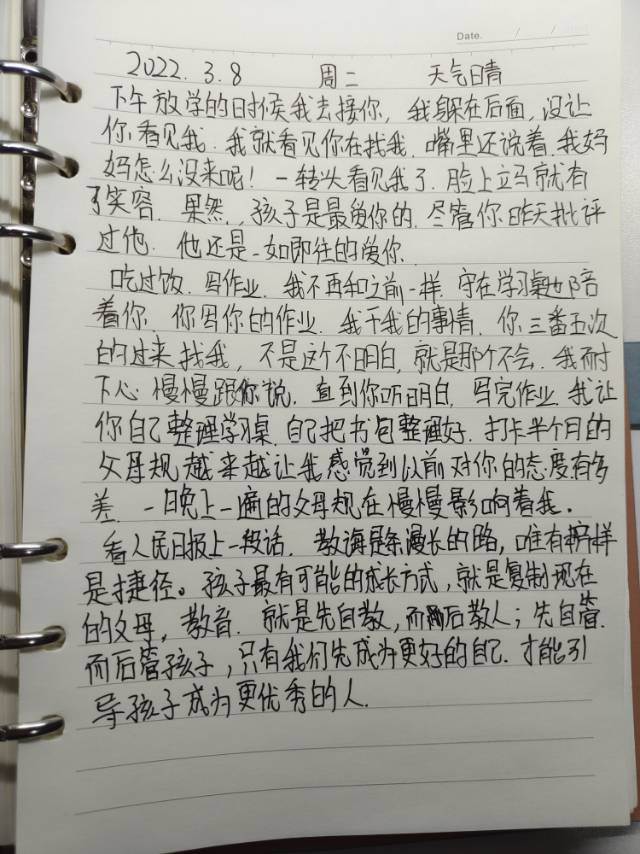 Date.
2022.3.8 周二 天气晴
下午放学的时候我去接你，我躲在后面，没让
你看见我．我就看见你在找我．嘴里还说着．我妈
妈怎么没来呢！一转头看见我了．脸上立马就有
了笑容．果然，孩子是最爱你的．尽管你昨天批评
过他．他还是一如即往的爱你．
吃过饭．写作业．我不再和之前一样．守在学习桌边陪
着你．你写你的作业．我干我的事情．你三番五次
的过来找我，不是这个不明白，就是那个不会．我耐
下心慢慢跟你说．直到你听明白．写完作业．我让
你自己整理学习桌．自己把书包整理好．打卡半个月的
父母规越来越让我感觉到以前对你的态度有多
差．一日晚上一遍的父母规在慢慢影响着我．
看人民日报上一段话．教诲是条漫长的路，唯有榜样
是捷径。孩子最有可能的成长方式，就是复制现在
的父母，教育．就是先自教，而后教人；先自管．
而后管孩子，只有我们先成为更好的自己．才能引
导孩子成为更优秀的人．